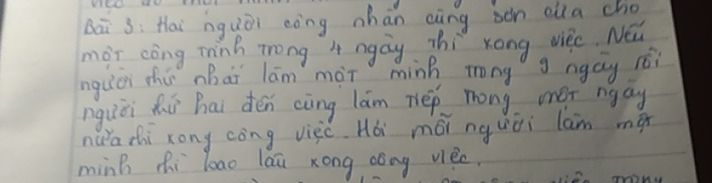 Bài 3: Hai người công nhân cùng sơn cửa cho
một công trình trong 4 ngày thì xong việc. Nếu
người thứ nhất làm một mình trong 9 ngày rồi
người thứ hai đến cùng làm tiếp trong một ngày
nữa thì xong công việc. Hỏi mỗi người làm một
mình thì bao lâu xong công việc.